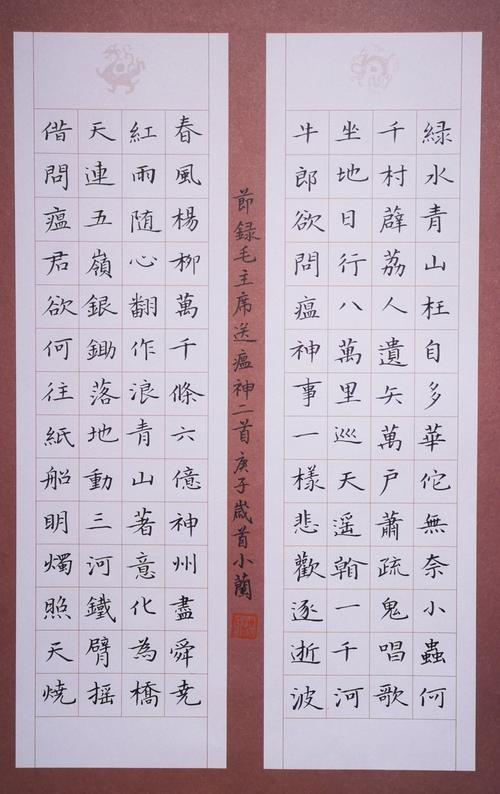 綠水青山枉自多華佗無奈小蟲何
千村薜荔人遺矢萬戶蕭疏鬼唱歌
坐地日行八萬里巡天遥翰一千河
牛郎欲問瘟神事一樣悲歡逐逝波
節録毛主席送瘟神二首庚子歲首小蘭
春風楊柳萬千條六億神州盡舜堯
紅雨随心翻作浪青山著意化為橋
天連五嶺銀鋤落地動三河鐵臂摇
借問瘟君欲何往紙船明燭照天燒